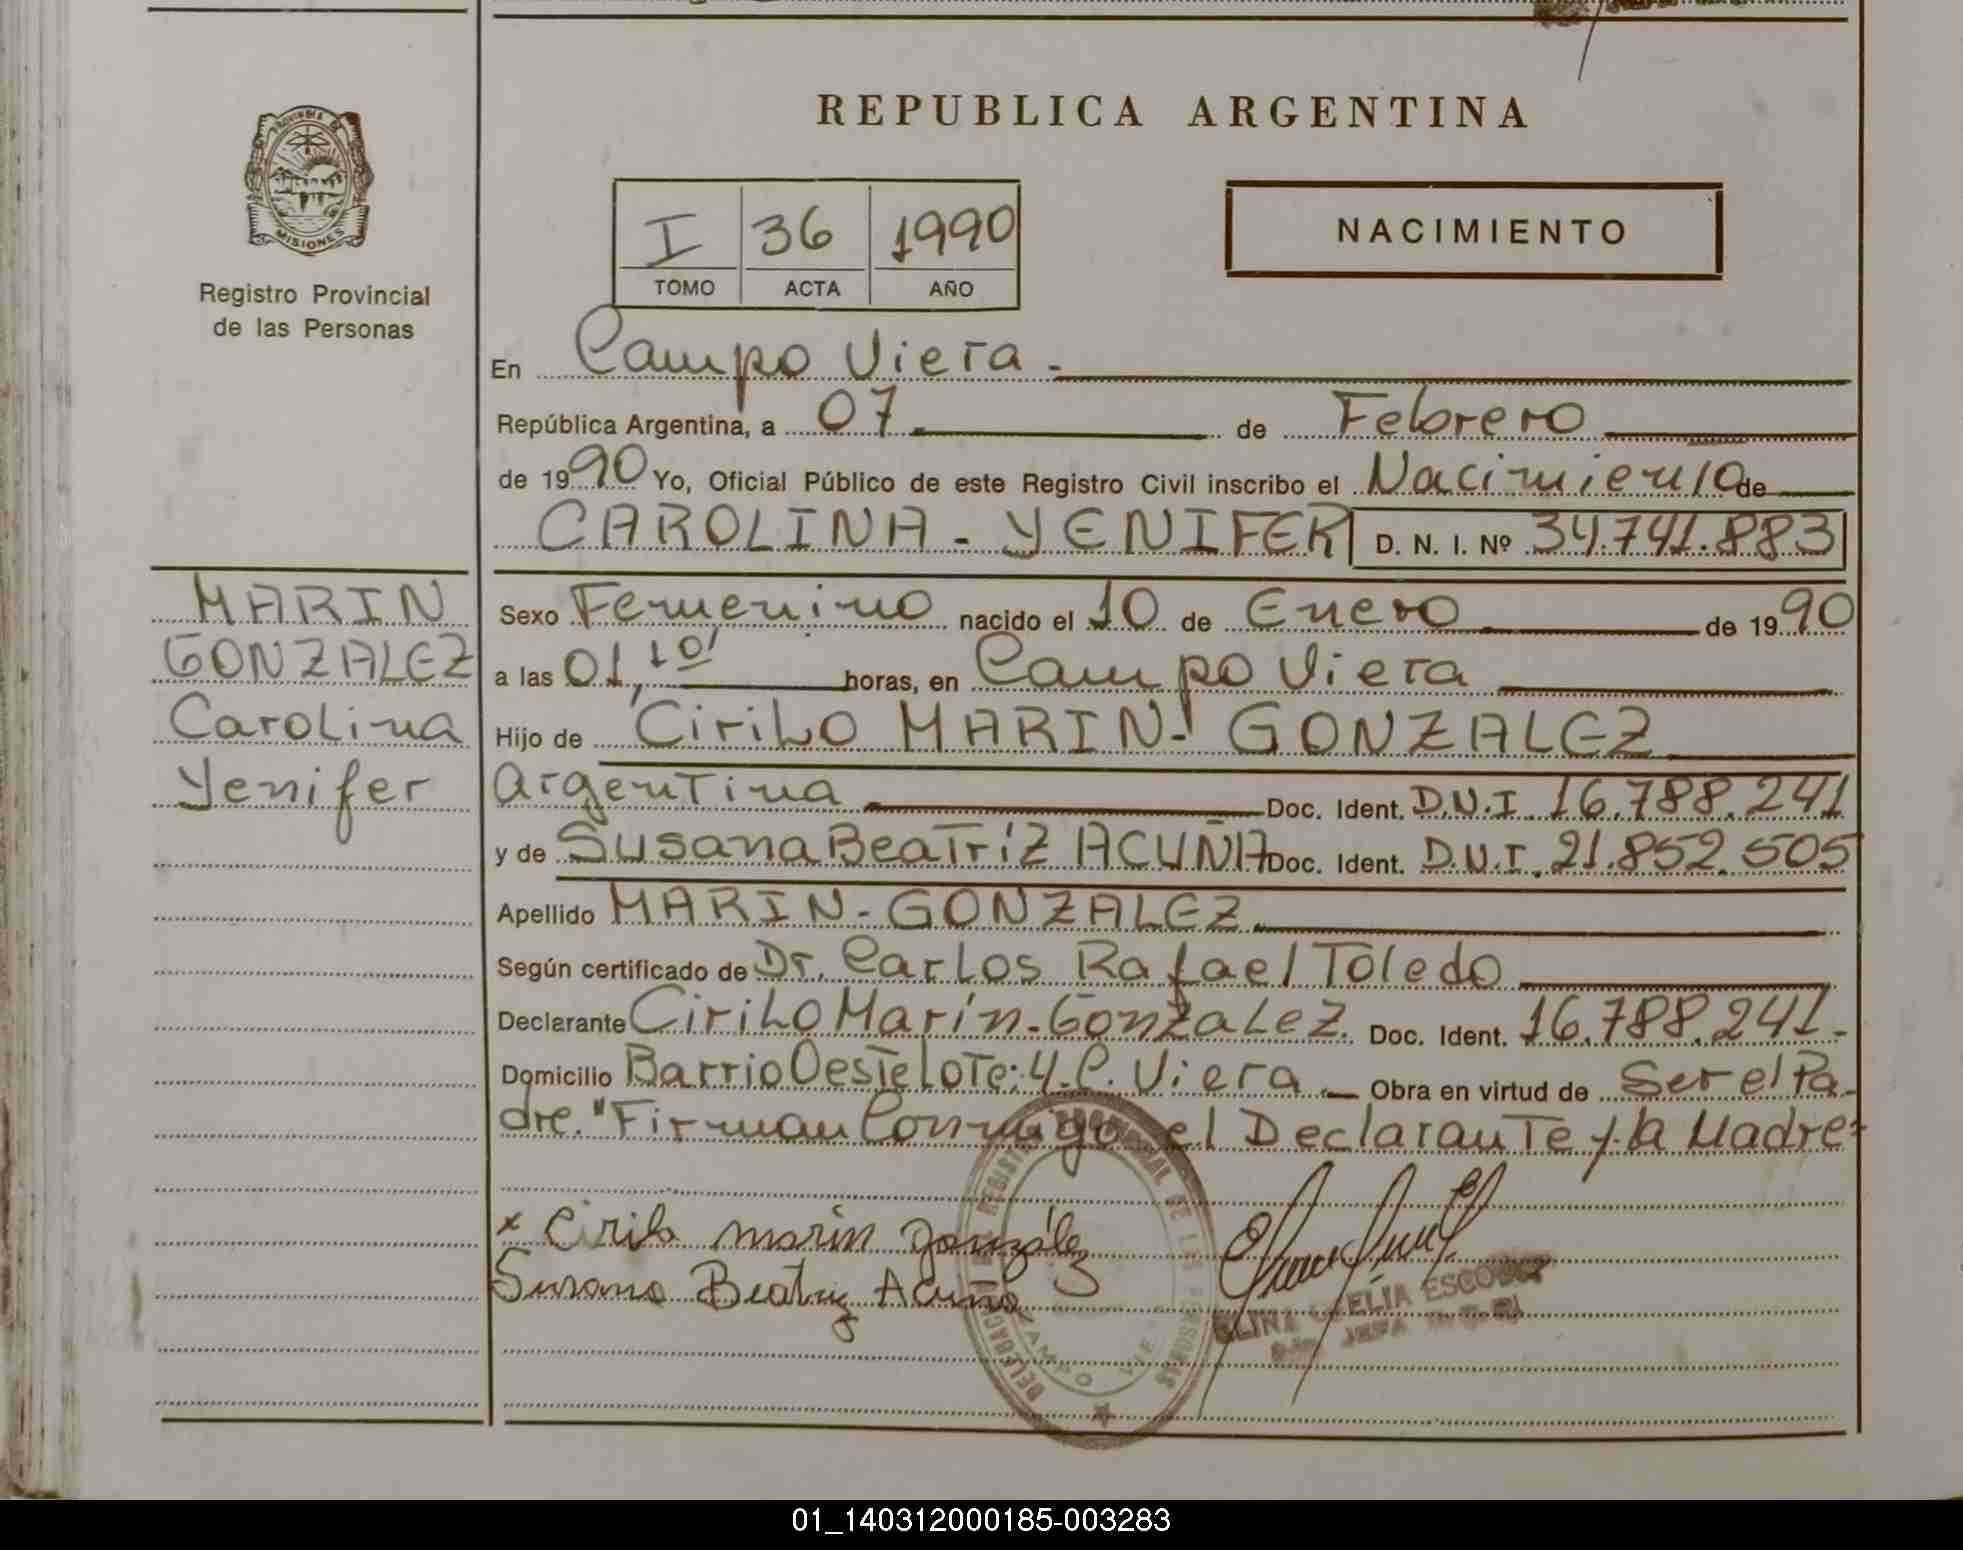 REPUBLICA ARGENTINA
PROVINCIA DE
MISIONES
Registro Provincial
de las Personas
I 36 1990
TOMO ACTA AÑO
NACIMIENTO
En Campo Viera.
República Argentina, a 07 de Febrero
de 1990 Yo, Oficial Público de este Registro Civil inscribo el Nacimiento de
CAROLINA - YENIFER D. N. I. Nº 34.741.883
MARIN
GONZALEZ
Carolina
Yenifer
Sexo Femenino nacido el 10 de Enero de 1990
a las 01,10' horas, en Campo Viera
Hijo de Cirilo MARIN- GONZALEZ
Argentina Doc. Ident. D.N.I. 16.788.241
y de Susana Beatríz ACUÑA Doc. Ident. D.N.I. 21.852.505
Apellido MARIN-GONZALEZ
Según certificado de Dr. Carlos Rafael Toledo
Declarante Cirilo Marín-Gonzalez. Doc. Ident. 16.788.241.
Domicilio Barrio Oeste Lote: 4. C. Viera. Obra en virtud de Ser el Pa-
dre. "Firman Conmigo el Declarante y la Madre-
x Cirilo marin gonzález
Susana Beatriz Acuña
ELIDA ESCOBAR
JEFA
DELEGACION REGISTRO PROVINCIAL DE LAS PERSONAS
01_140312000185-003283